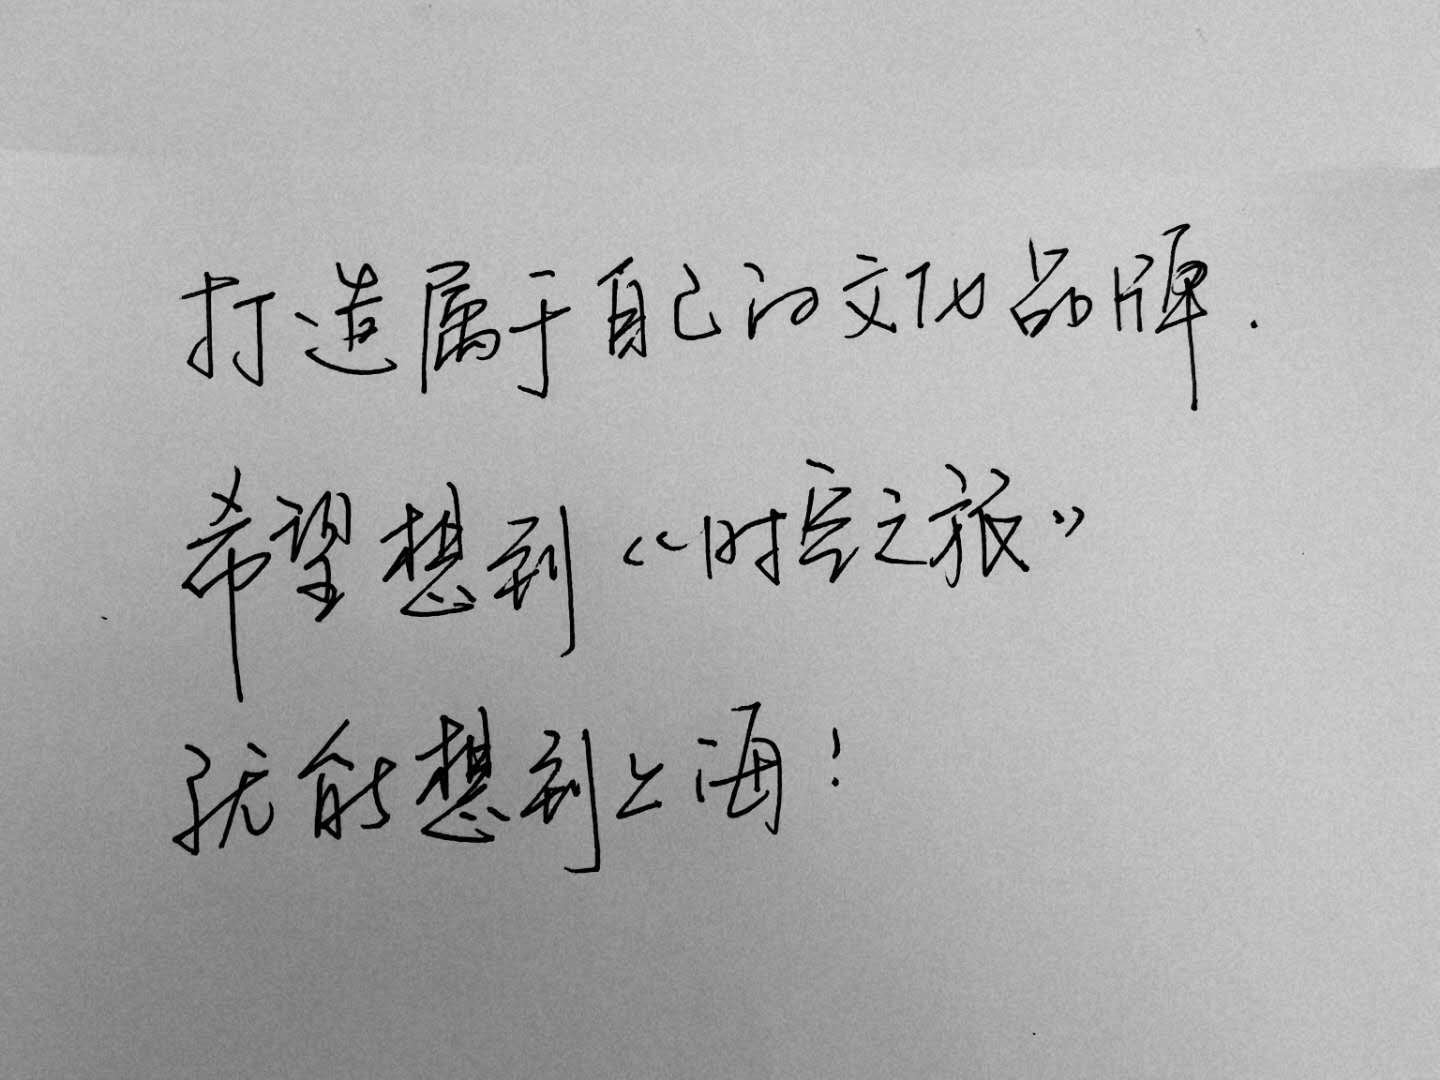 打造属于自己的文化品牌.
希望想到《时空之旅》
就能想到上海!